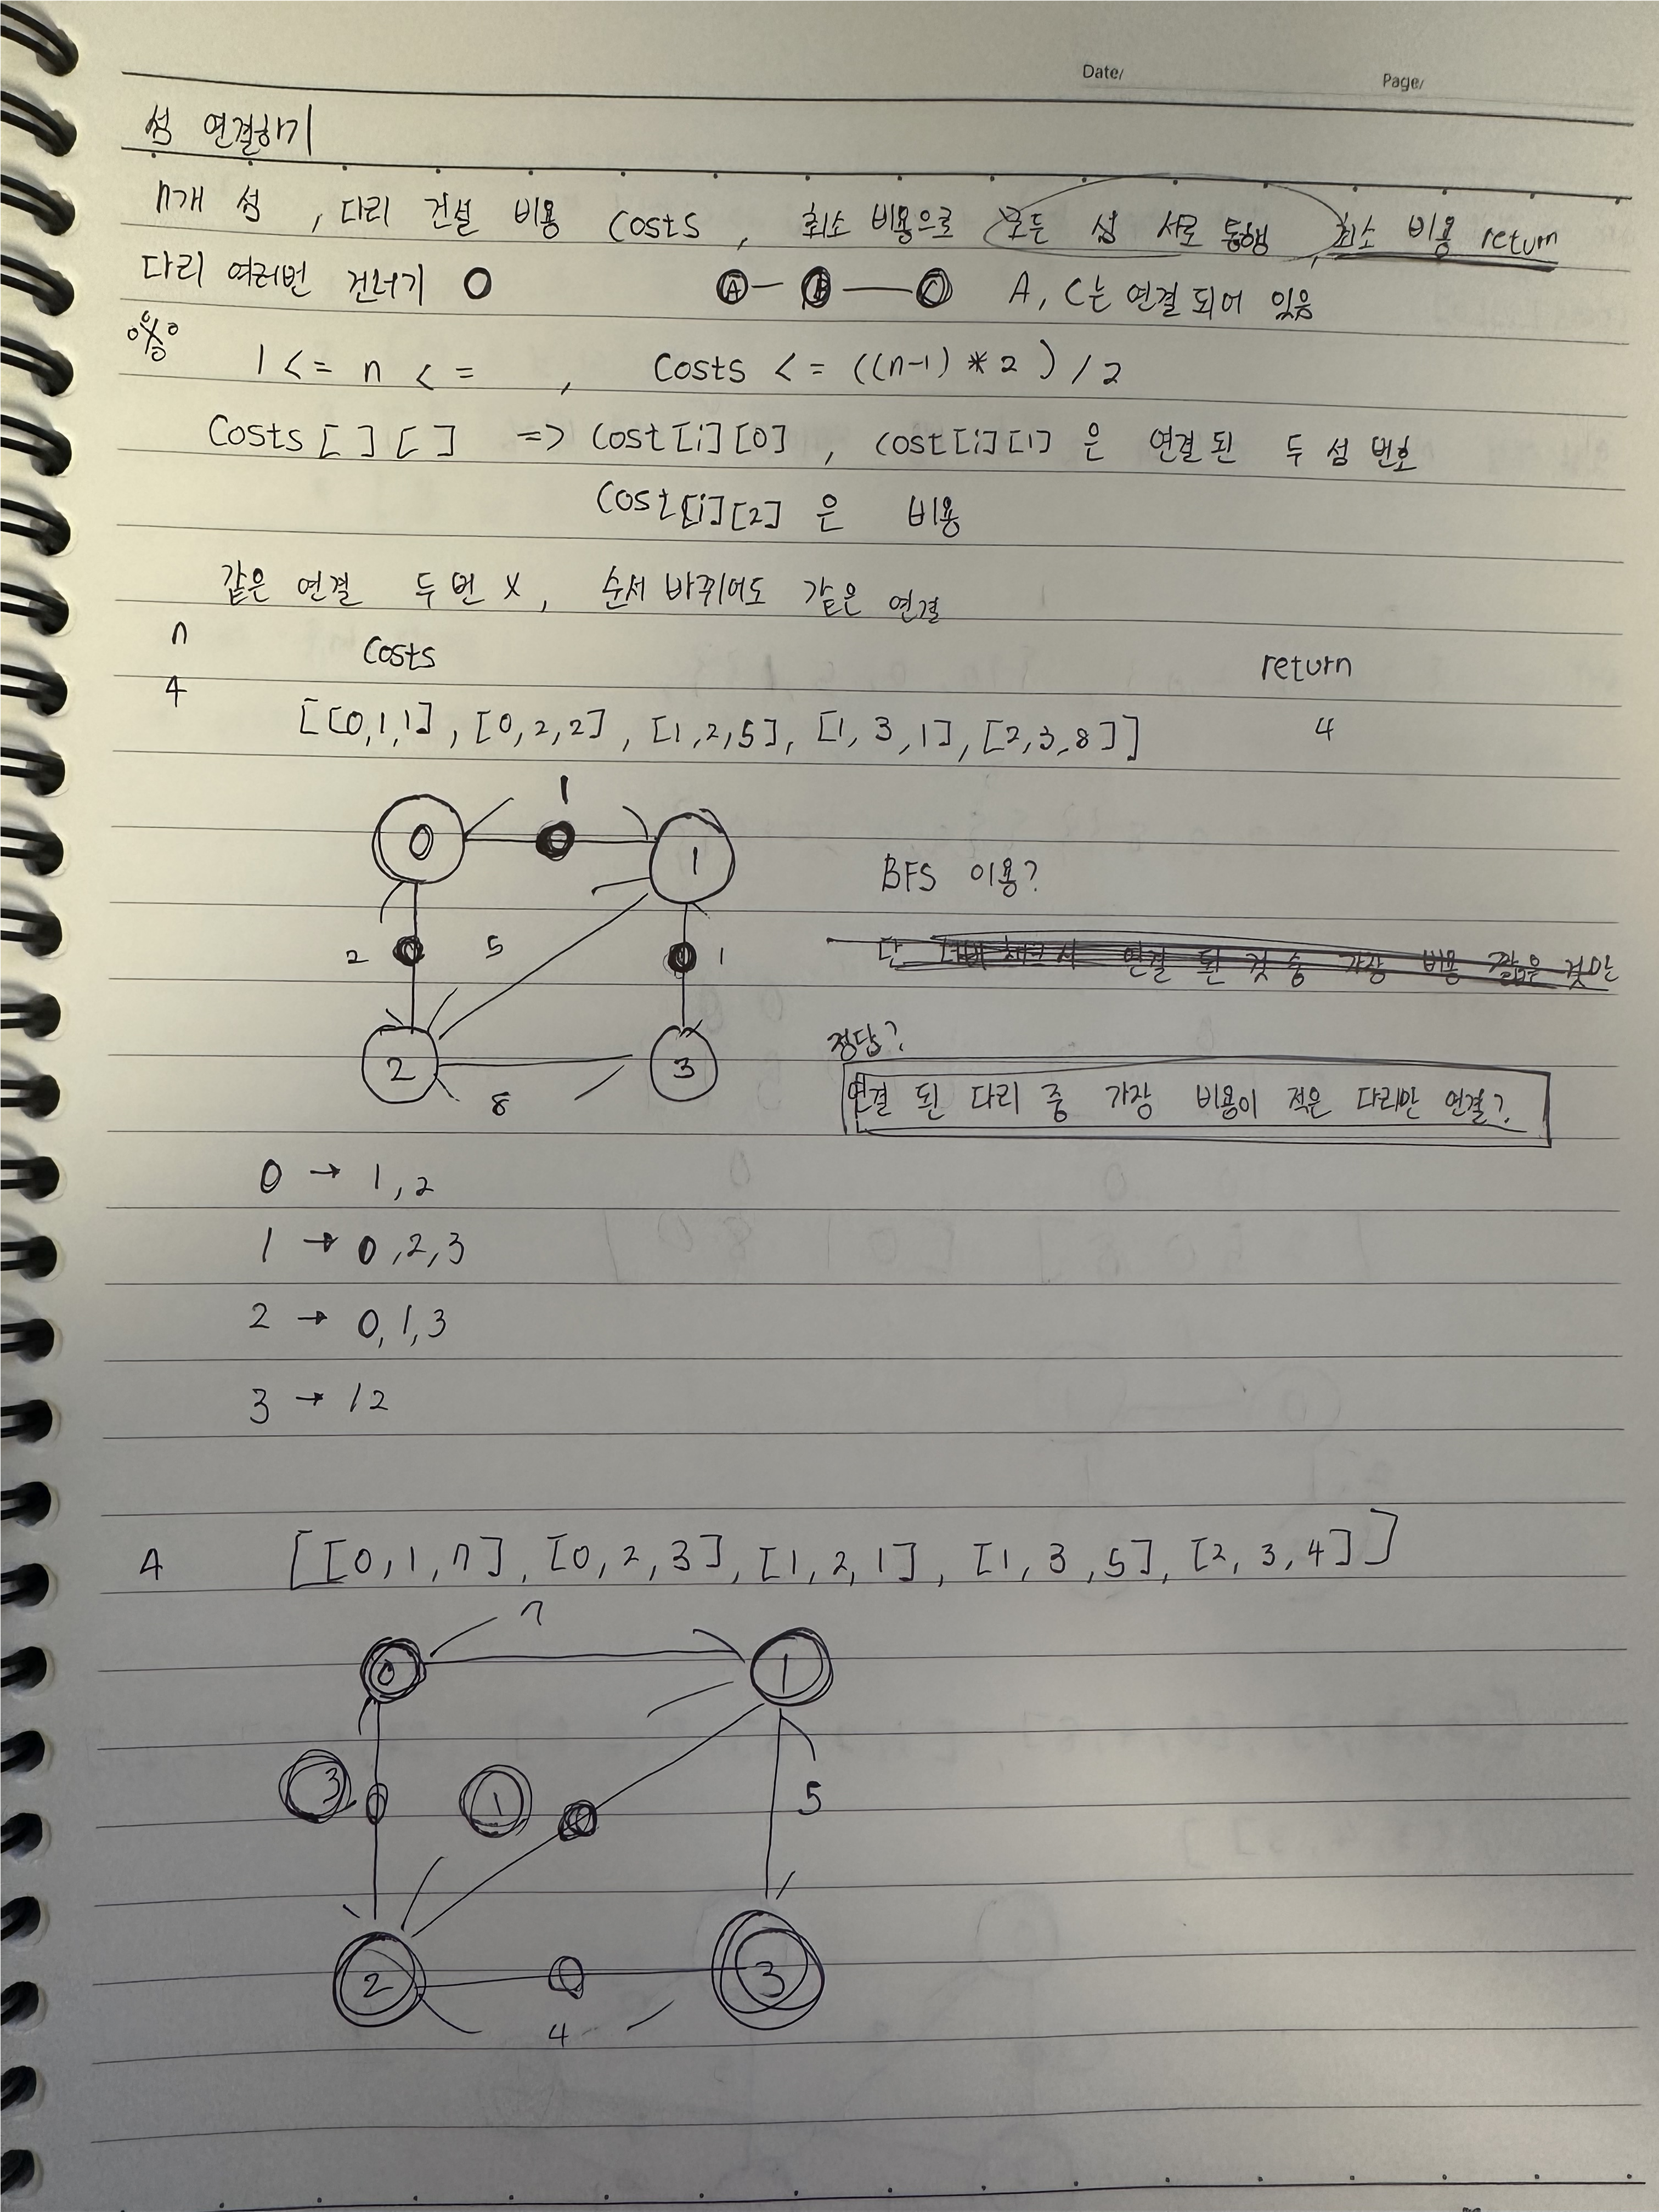 Date/ Page/
섬 연결하기
n개 섬 , 다리 건설 비용 costs , 최소 비용으로 모든 섬 서로 통행, 최소 비용 return
다리 여러번 건너기 O A B C A, C는 연결 되어 있음
1 <= n <= , Costs <= ((n-1) * 2 ) / 2
Costs [ ] [ ] => cost [i] [0] , cost [i] [1] 은 연결 된 두 섬 번호
Cost [i] [2] 은 비용
같은 연결 두 번 X, 순서 바뀌어도 같은 연결
n Costs return
4 [[0,1,1] , [0,2,2] , [1,2,5], [1,3,1], [2,3,8]] 4
1
0 1
BFS 이용?
2 5 1
단 연결 된 것 중 가장 비용 짧은 것만
정답?
2 3
8
연결 된 다리 중 가장 비용이 적은 다리만 연결?
0 → 1,2
1 → 0,2,3
2 → 0,1,3
3 → 12
4 [[0,1,7], [0,2,3], [1,2,1], [1,3,5], [2,3,4]]
7
0 1
3 1 5
2 3
4